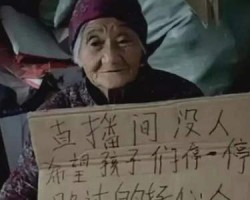 直播间没人
希望孩子们停一停
路过的好心人